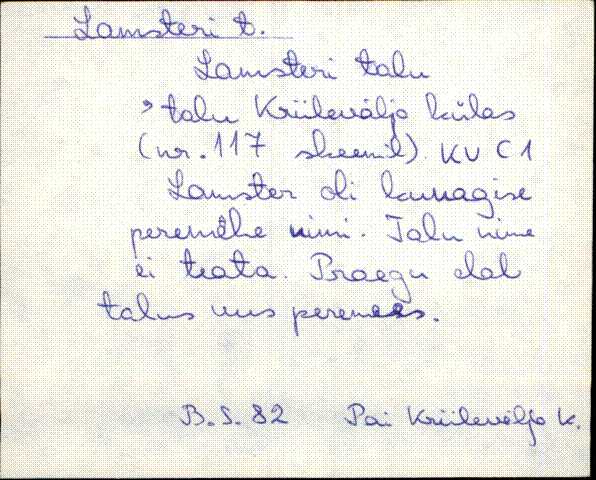 Lamsteri t.
Lamsteri talu
> talu Kriilevälja külas
(nr. 117 skeemil). KV C1
Lamster oli kunagise
peremehe nimi. Talu nime
ei teata. Praegu elab
talus uus peremees.
B.S. 82 Pai Kriilevälja k.